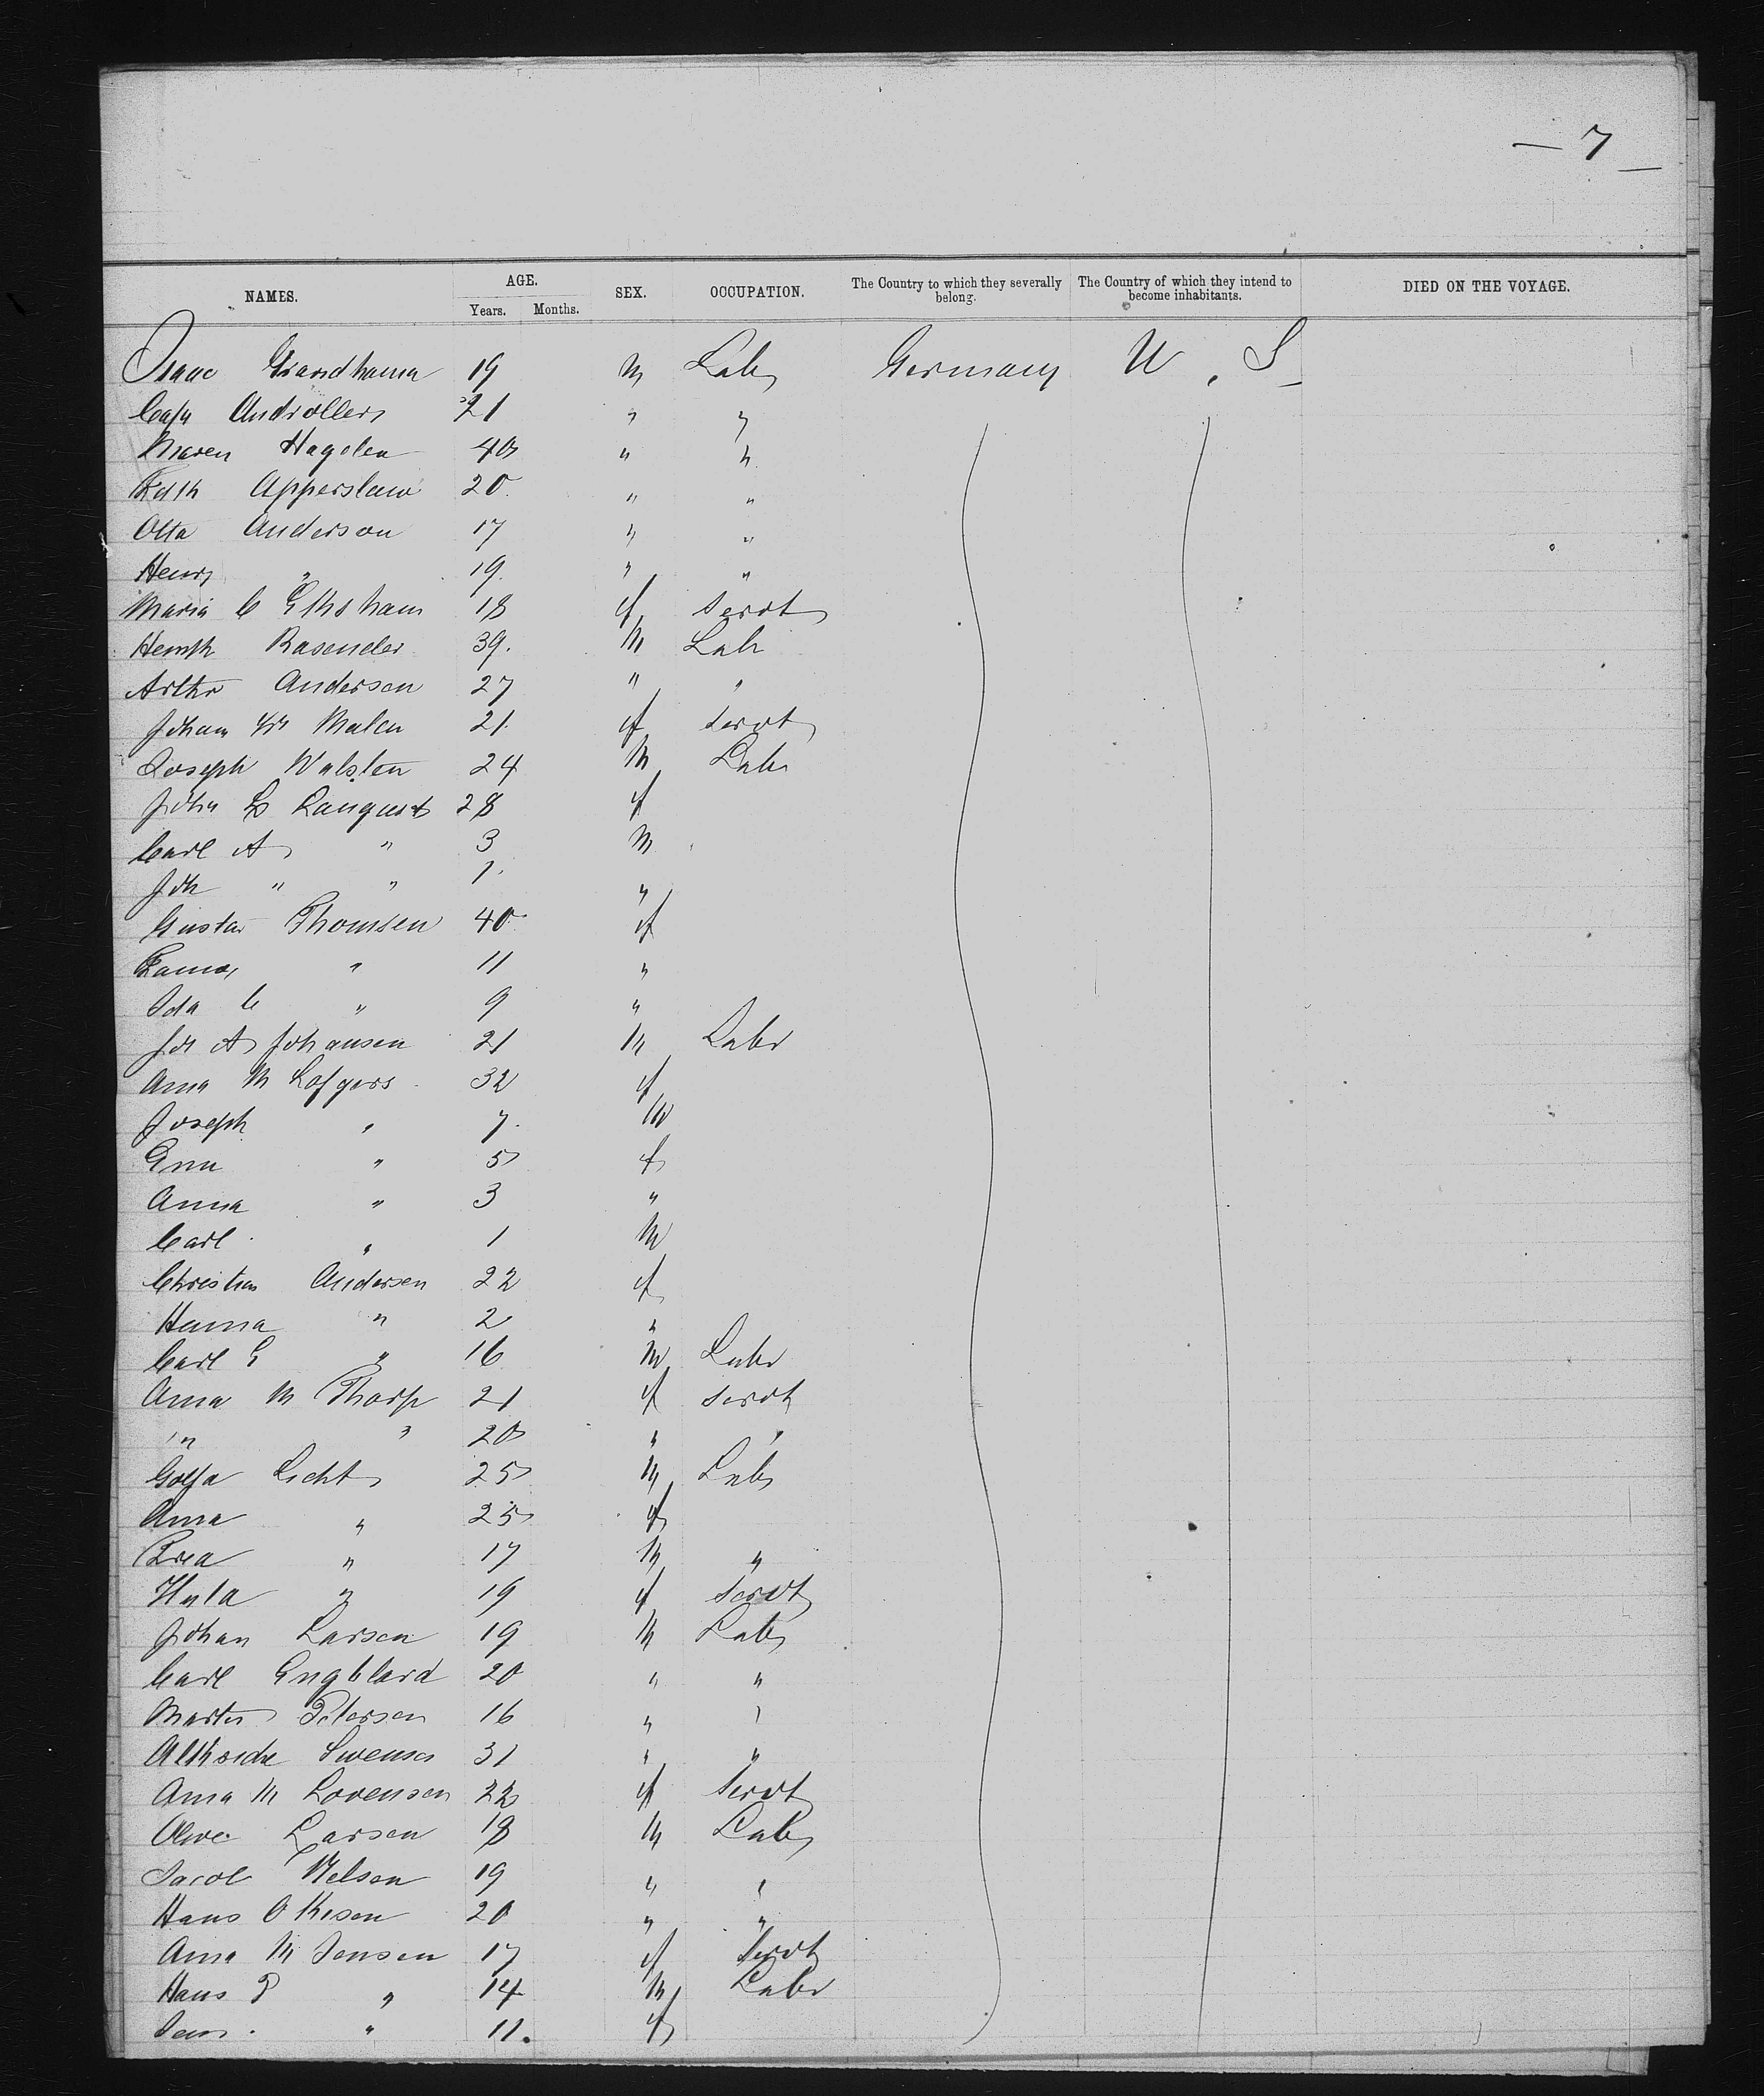 — 7 —
NAMES. AGE. Years. Months. SEX. OCCUPATION. The Country to which they severally belong. The Country of which they intend to become inhabitants. DIED ON THE VOYAGE.
Isaac 19 M Lab Germany U. S.
21 " "
Maren Hagelen 40 " "
20 " "
Otta Anderson 17 " "
Henry " 19 " "
Maria C 18 f Servt
39. M Lab
Arthr Andersen 27 " "
Johan Malen 21. f Servt
Joseph Walsten 24 M Lab
John Lanquist 28 f
Carl A " 3 M
Joh " " 1. "
Gustav Thomsen 40 f
" 11 "
Ida C " 9 "
Jos A Johansen 21 M Labr
Anna M Lofgers 32 f
Joseph " 7. M
" 5 f
Anna " 3 "
Carl " 1 M
Christian Andersen 22 f
Hanna " 2 "
Carl G " 16 M Labr
Anna M Tharp 21 f Servt
" " 20 " "
Licht 25 M Lab
Anna " 25 f
" 17 M "
" 19 f Servt
Johan Larsen 19 M Lab
Carl Engblard 20 " "
Martin Petersen 16 " "
Swensen 31 " "
Anna M Lorensen 22 f Servt
Larsen 18 M Lab
Jacob Nelsen 19 " "
Hans 20 " "
Anna M Jensen 17 f Servt
Hans P " 14 M Labr
" 11. f